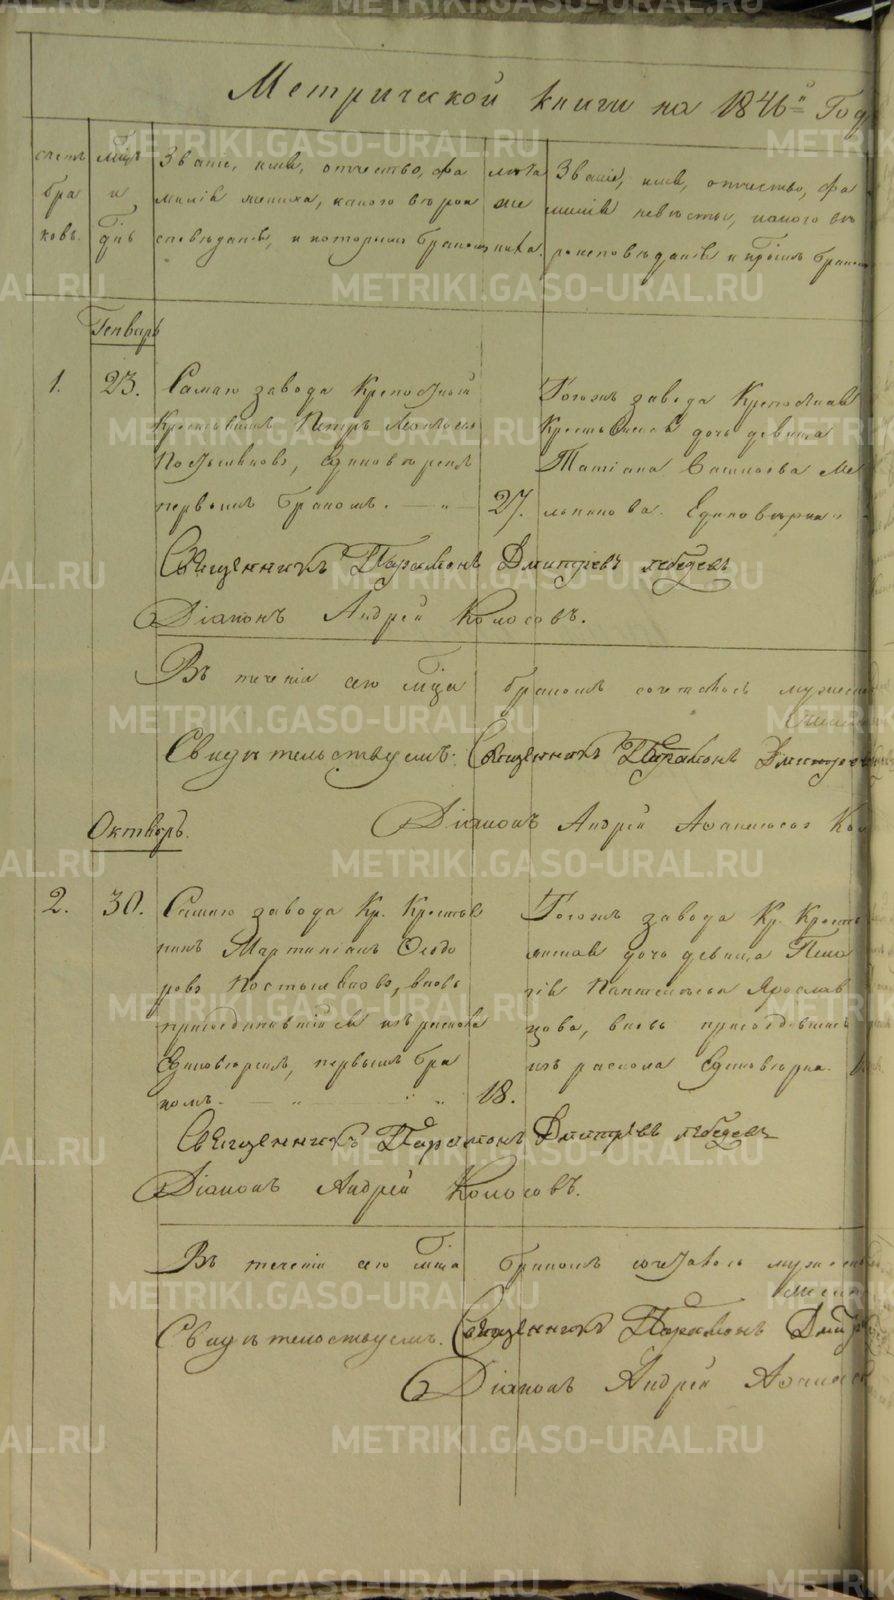 Метрической книги на 1846й Год
счетъ
бра
ковъ.
Мцъ
и
днь
Званіе, имя, отчество, фа
милія жениха, какого вѣрои
сповѣданія, и которымъ бракомъ
лѣта
же
ниха.
Званіе, имя, отчество, фа
милія невѣсты, какого вѣ
роисповѣданія и коимъ браком
Генварь
1.
23.
Самаго завода Крепостный
Крестьянинъ Петръ
единовѣрецъ
первымъ бракомъ.
27.
Тогожъ завода Крепостная
Крестьянская дочь девица
Татіана Ме
льникова. Единовѣрка
Священникъ Парамонъ Дмитріевъ Лебедевъ
Діаконъ Андрей Колосовъ.
Въ теченіи сего мца бракомъ сочеталось мужеска
Свидѣтельствуемъ: Священникъ Парамонъ Дмитріе
Діаконъ Андрей Афанасьев Кол
Октябрь.
2.
30.
Самаго завода Кр. Крестья
нинъ Мартиніанъ Ѳеодо
ровъ Постыляковъ, вновь
присоединившійся изъ раскола
Единовѣрецъ, первымъ бра
комъ.
18.
Тогожъ завода Кр. Кресть
янская дочь девица Пела
гія Пантелеева Ярослав
цова, вновь присоединившаяся
изъ раскола Единовѣрка.
Священникъ Парамонъ Дмитріевъ Лебедевъ
Діаконъ Андрей Колосовъ.
Въ теченіи сего мца бракомъ сочеталось мужеска
Свидѣтельствуемъ. Священникъ Парамонъ Дмитр
Діаконъ Андрей Афанасье
METRIKI.GASO-URAL.RU